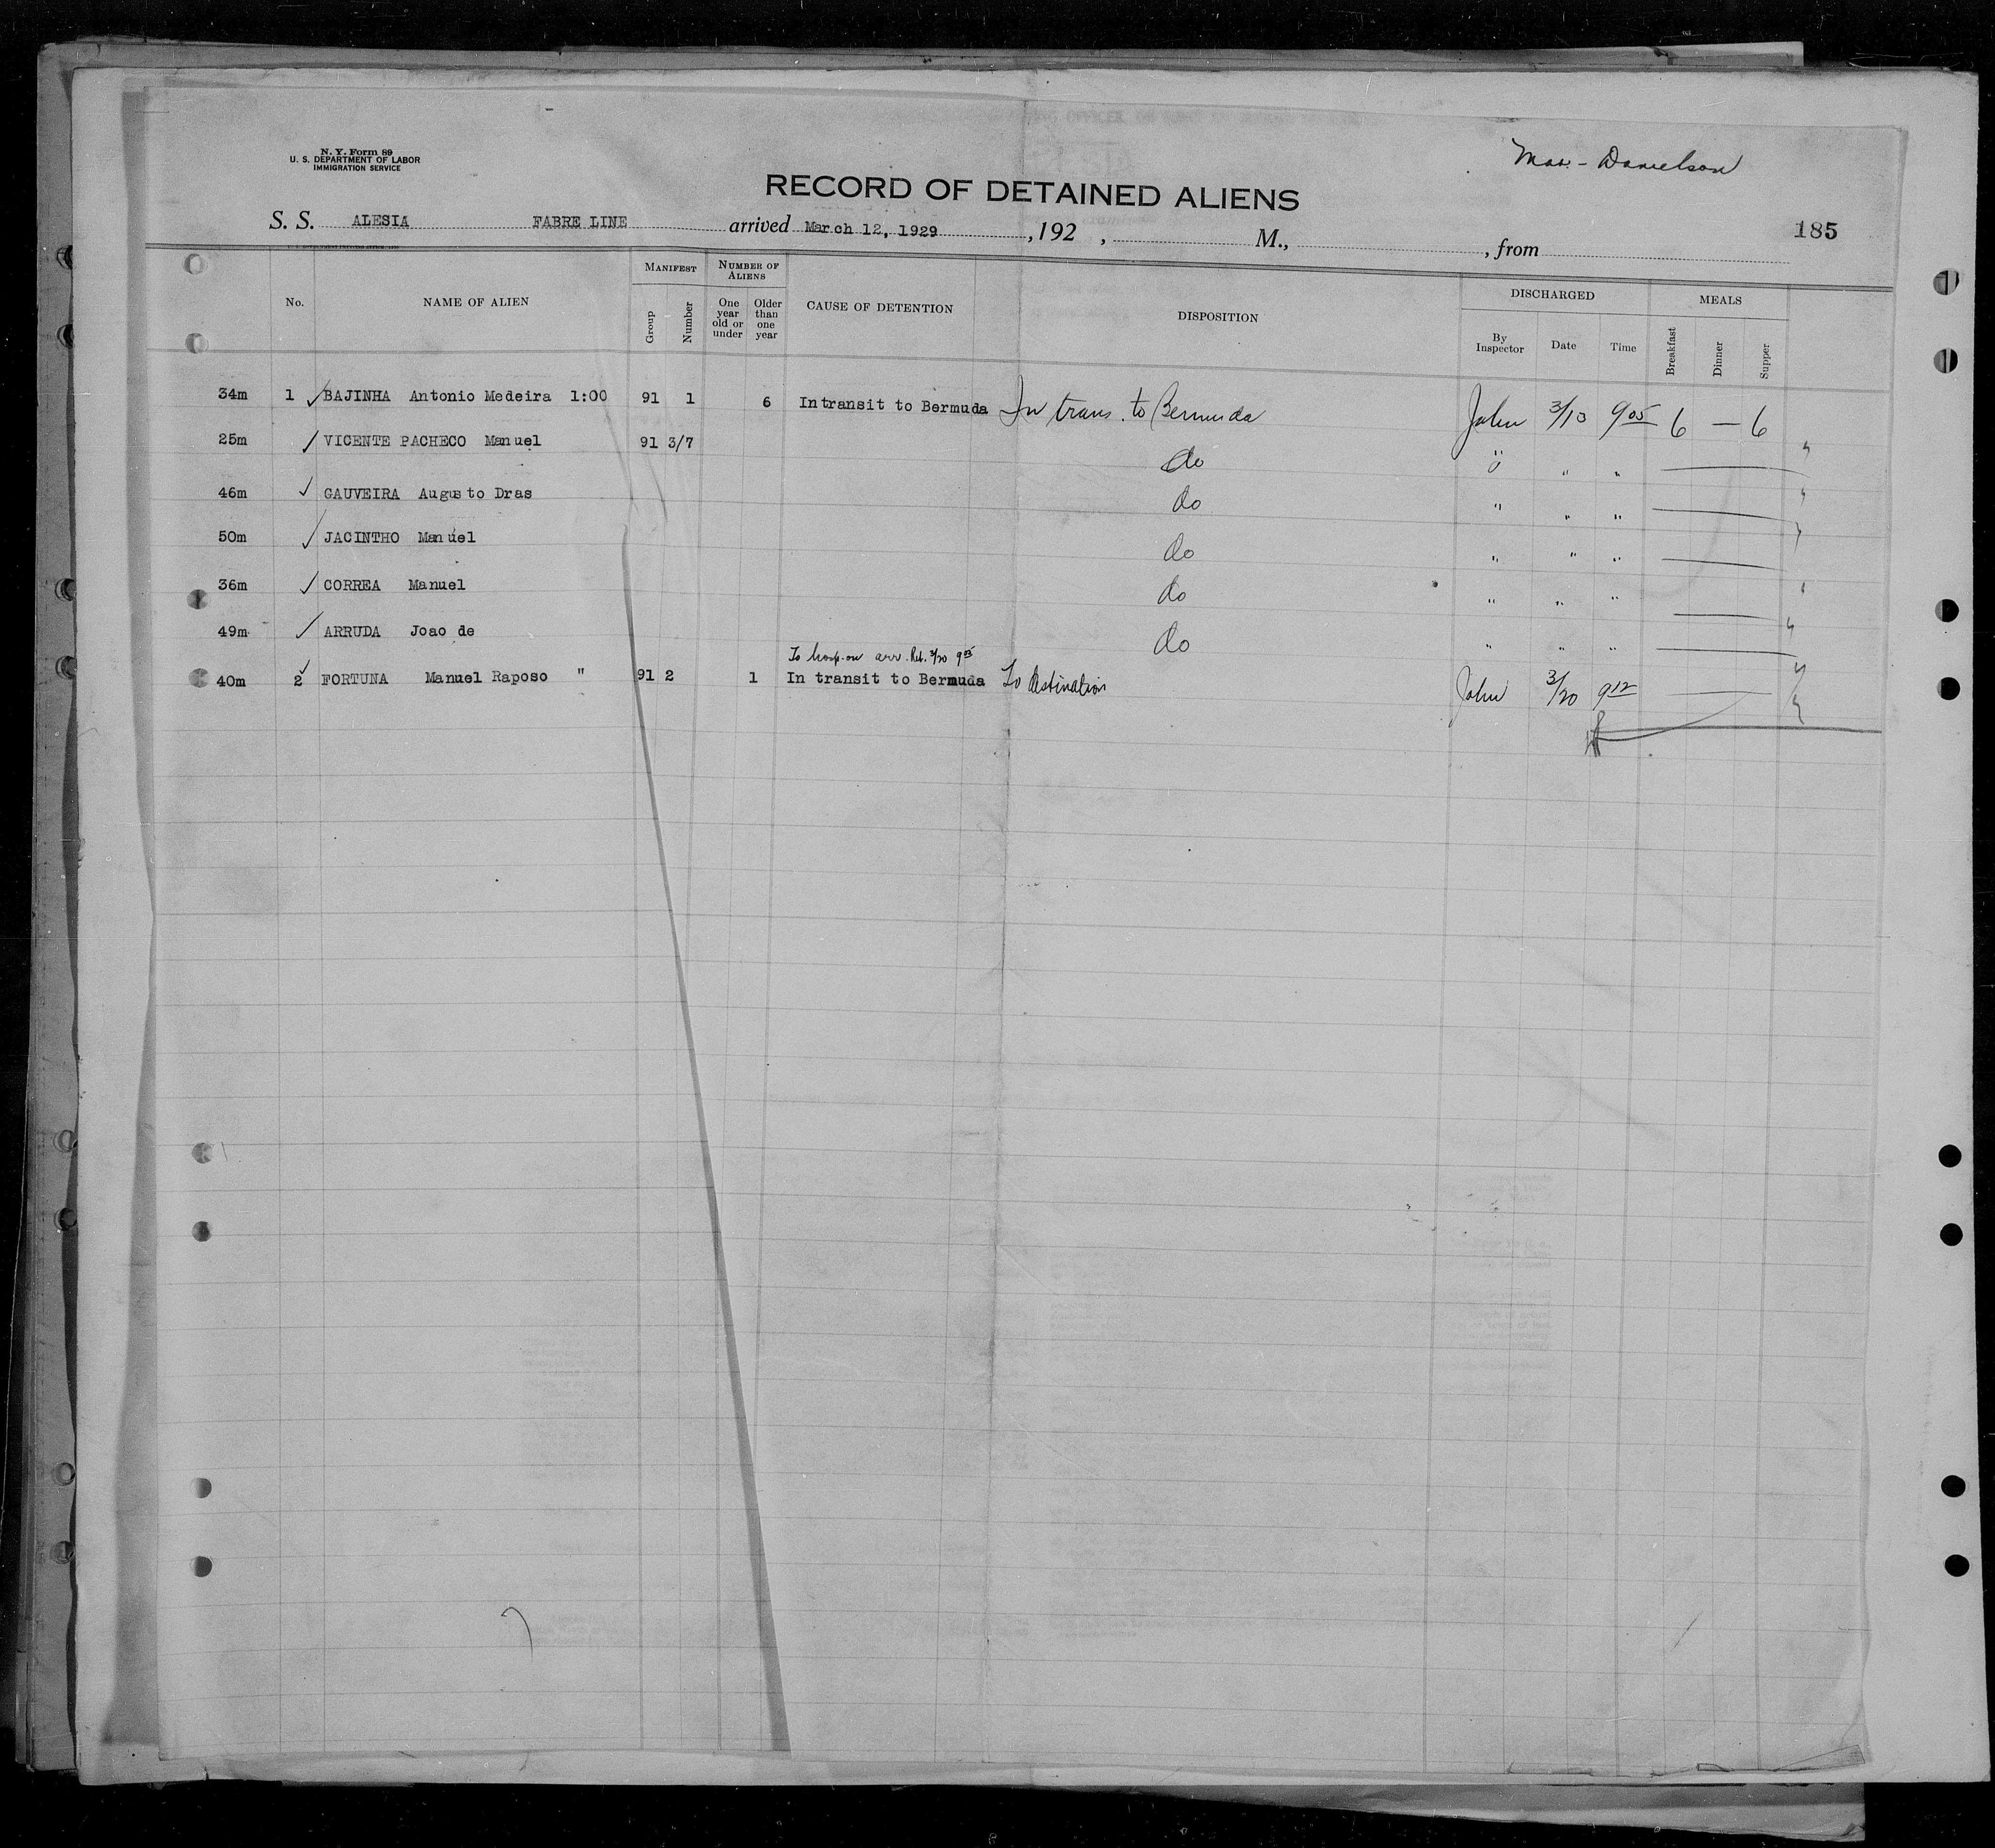 N. Y. Form 89
U. S. DEPARTMENT OF LABOR
IMMIGRATION SERVICE
Danielson
RECORD OF DETAINED ALIENS
S. S. ALESIA FABRE LINE arrived March 12, 1929 , 192 , M., , from 185
MANIFEST NUMBER OF ALIENS DISCHARGED MEALS
No. NAME OF ALIEN Group Number One year old or under Older than one year CAUSE OF DETENTION DISPOSITION By Inspector Date Time Breakfast Dinner Supper
34m 1 ✓ BAJINHA Antonio Medeira 1:00 91 1 6 Intransit to Bermuda In trans. to Bermuda John 3/13 9 05 6 — 6
25m ✓ VICENTE PACHECO Manuel 91 3/7 do " " "
46m ✓ GAUVEIRA Augusto Dras do " " "
50m ✓ JACINTHO Manuel do " " "
36m ✓ CORREA Manuel do " " "
49m ✓ ARRUDA Joao de do " " "
To hosp. on arr. Rel. 3/20 9 05
40m 2 ✓ FORTUNA Manuel Raposo " 91 2 1 In transit to Bermuda To destination John 3/20 9 12